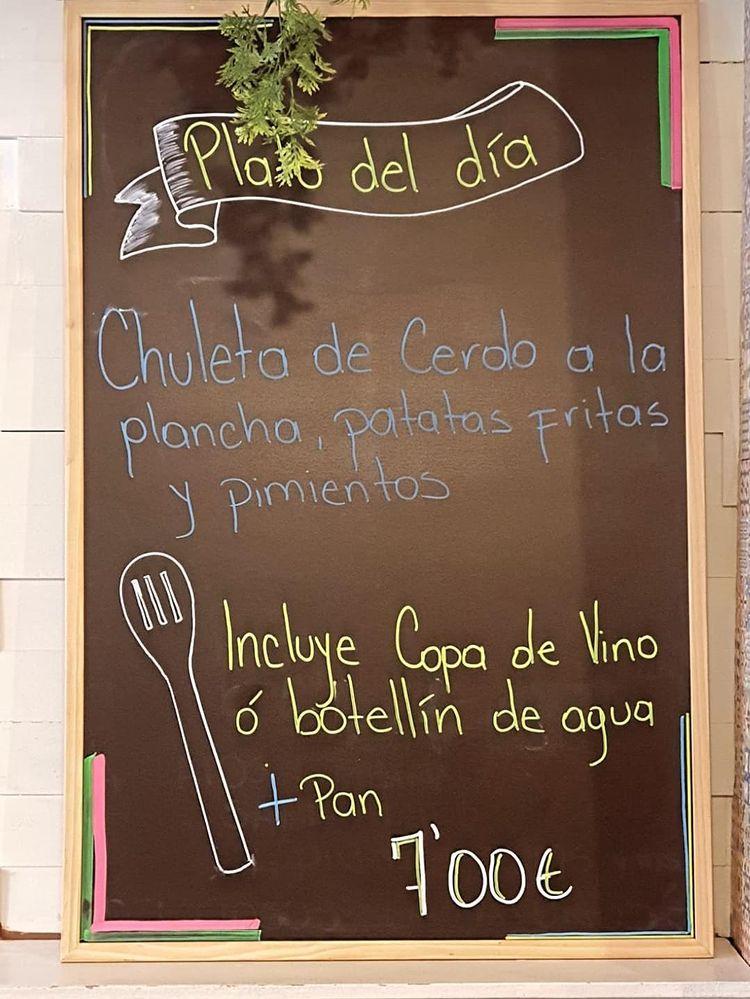 Plato del día
Chuleta de Cerdo a la
plancha, patatas fritas
y pimientos
Incluye Copa de Vino
ó botellín de agua
+ Pan
7'00€